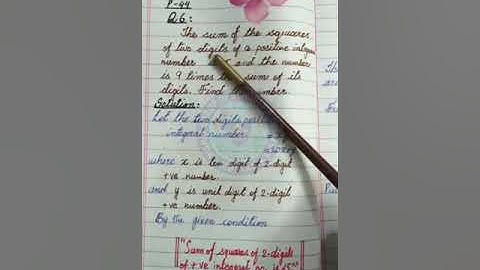 P-94
Q.6:
The sum of the squares
of two digits of a positive integral
number 5 and the number
is 9 times the sum of its
digits. Find the number.
Solution:
Let the two digits positive
integral number =
=
where x is ten digit of 2-digit
+ve number
and y is unit digit of 2-digit
+ve number.
By the given condition
"Sum of squares of 2-digits
of +ve integral no. is